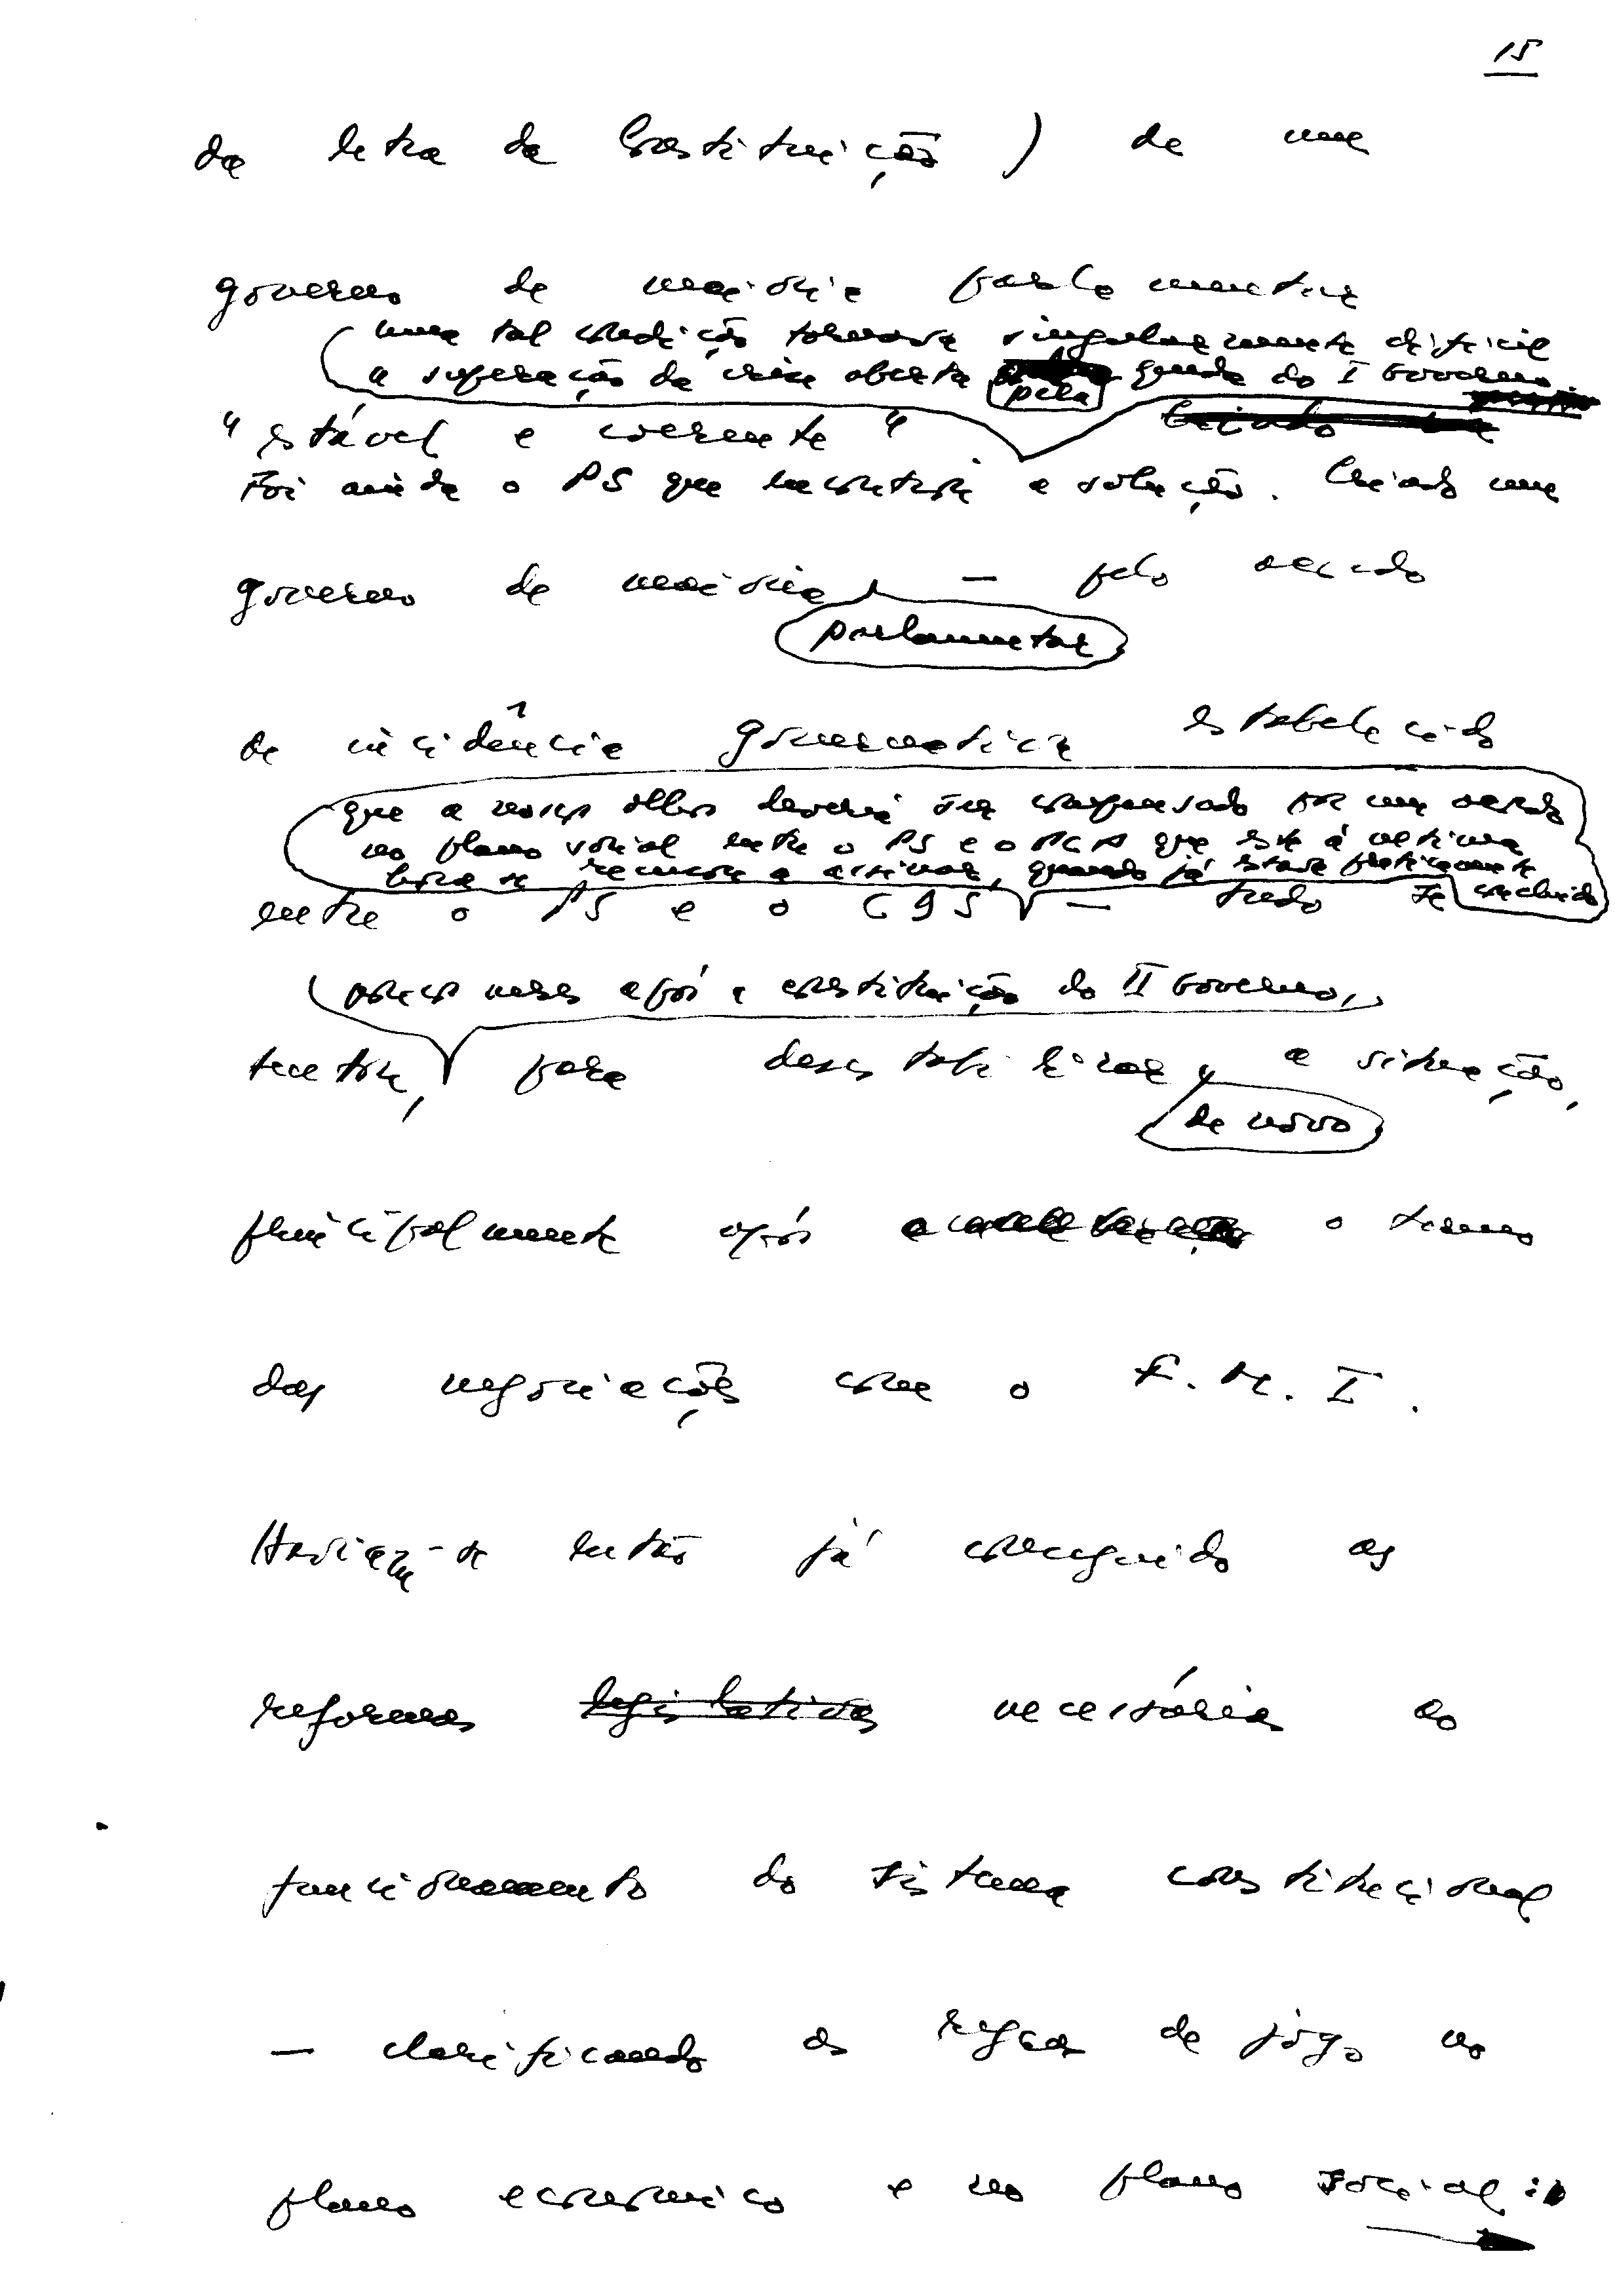 15
da letra da Constituição) de um
governo de maioria parlamentar
uma tal condição tornava singularmente difícil
a superação da crise aberta pela queda do I Governo.
"estável e coerente"
Foi ainda o PS que encontrou a solução. Criado um
governo de maioria — pelo acordo
parlamentar
de incidência governativa estabelecido
que a nossos olhos deveria ser compensado por um acordo
no plano social entre o PS e o PCP que este à última
hora se recusou a assinar, quando já estava praticamente
concluído
entre o PS e o CDS — tudo se
poucos meses após a constituição do II Governo,
tentou, para desestabilizar a situação,
de novo
principalmente após o termo
das negociações com o F.M.I.
Haviam-se então já conseguido as
reformas legislativas necessárias ao
funcionamento do sistema constitucional
— clarificando as regras de jogo no
plano económico e no plano social: